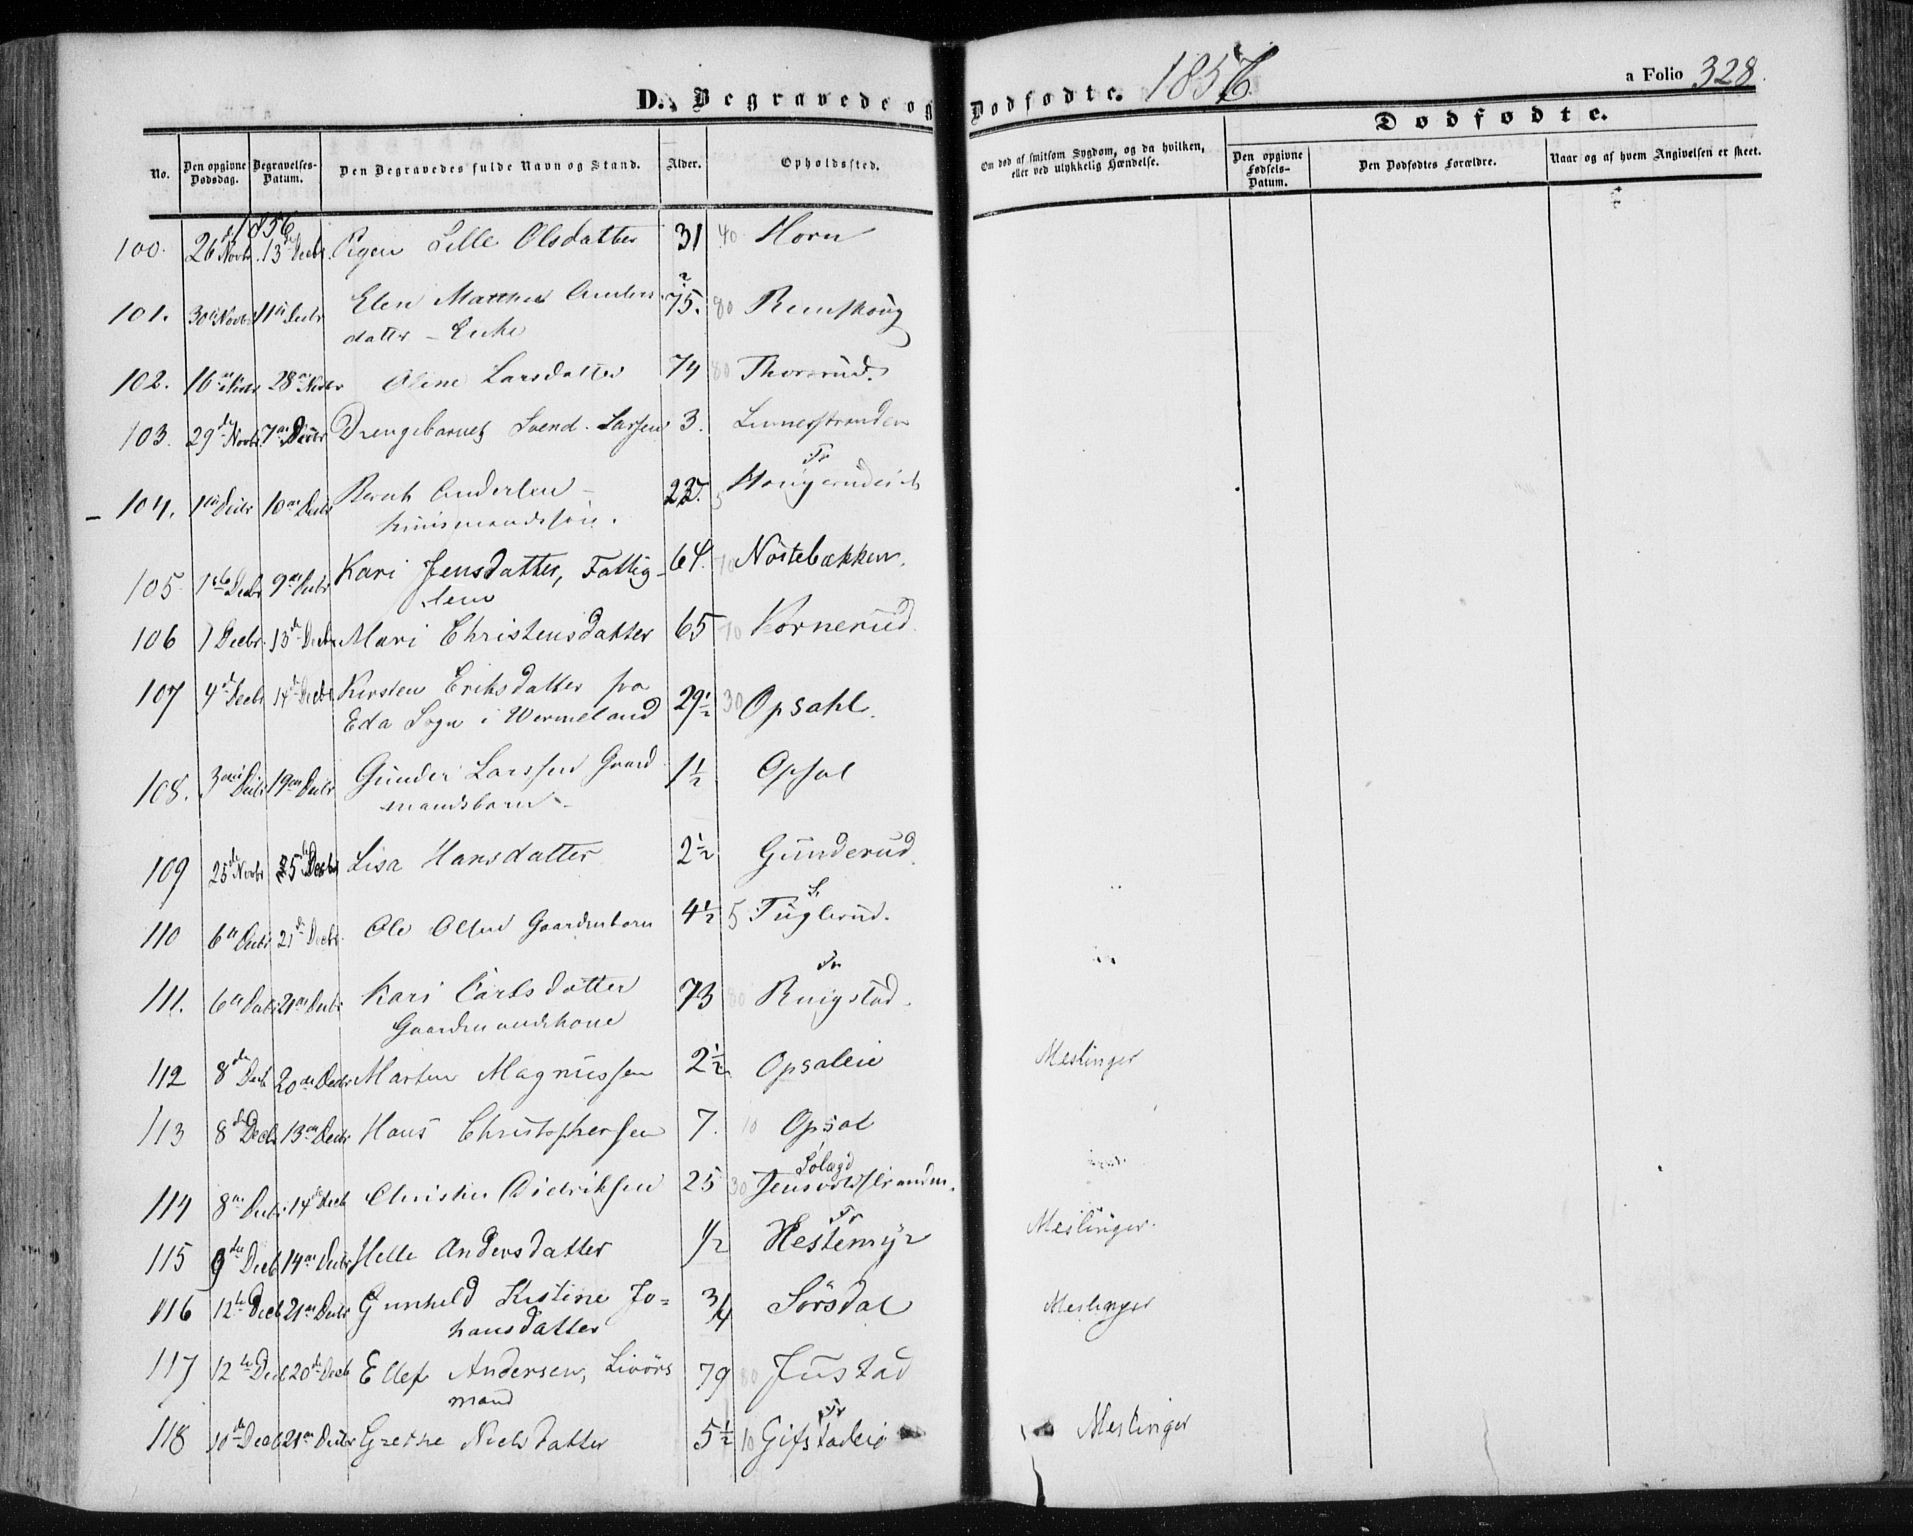 D., Begravede og Dødfødte. 1856
a Folio 328.
Dødfødte.
No.
Den opgivne Dødsdag.
Begravelses-Datum.
Den Begravedes fulde Navn og Stand.
Alder.
Opholdssted.
Om død af smitsom Sygdom, og da hvilken,
eller ved ulykkelig Hændelse.
Den opgivne Fødsels-Datum.
Den Dødfødtes Forældre.
Naar og af hvem Angivelsen er skeet.
1856
100. 26de Novbr 13de Decbr. Pigen Lille Olsdatter 31 40 Horn
101. 30te Novbr 11te Decbr Elen Matthea Anders
datter – Enke 75. 80 Remskoug
102. 16de Novbr 28de Novbr Oline Larsdatter 74 80 Thorsrud.
103. 29de Novbr 7de Decbr Drengebarnet Svend Larsen 3. Linnesstranden
104. 1ste Decbr 10de Decbr Bernt Andersen –
huusmandssøn. 5
105 1ste Decbr 9de Decbr Kari Jensdatter, Fattig-
lem 64. 70 Nöstebækken.
106 1 Decbr. 13de Decbr Mari Christensdatter 65 70 Kornerud
107 4de Decbr 14de Decbr Kersten Eriksdatter fra
Eda Sogn i Wermeland 29½ 30 Opsahl.
108. 3die Decbr 19de Decbr Gunder Larssen Gaard
mandsbarn – 1½ Opsal
109 25de Novbr 25de Decbr Lisa Hansdatter 2½ Gunderud
110 6te Decbr 21de Decbr. Ole Olsen Gaardmbarn 4½ 5 Fuglerud.
111. 6te Decbr 21de Decbr Kari Carlsdatter
Gaardmandskone 73 80 Ringstad.
112 8de Decb 20de Decbr Marten Magnussen 2½ Opsaleie Meslinger
113 8de Decb 13de Decbr Hans Christophersen 7. 10 Opsal
114 8de Decbr 14de Decb Christen Didriksen 25 30 Jensvoldstranden.
115 9de Decb 14de Decbr Helle Andersdatter ½ Hestemyr Meslinger.
116 12te Decb 21de Decbr Gunhild Kistine Jo=
hansdatter 3/4 Sörsdal Meslinger
117 12te Decb 20de Decb Ellef Andersen, Livörs
mand 79 80 Justad
118 10de Decb 21de Decbr Grethe Nielsdatter 5½ 10 Gifstadeie Meslinger